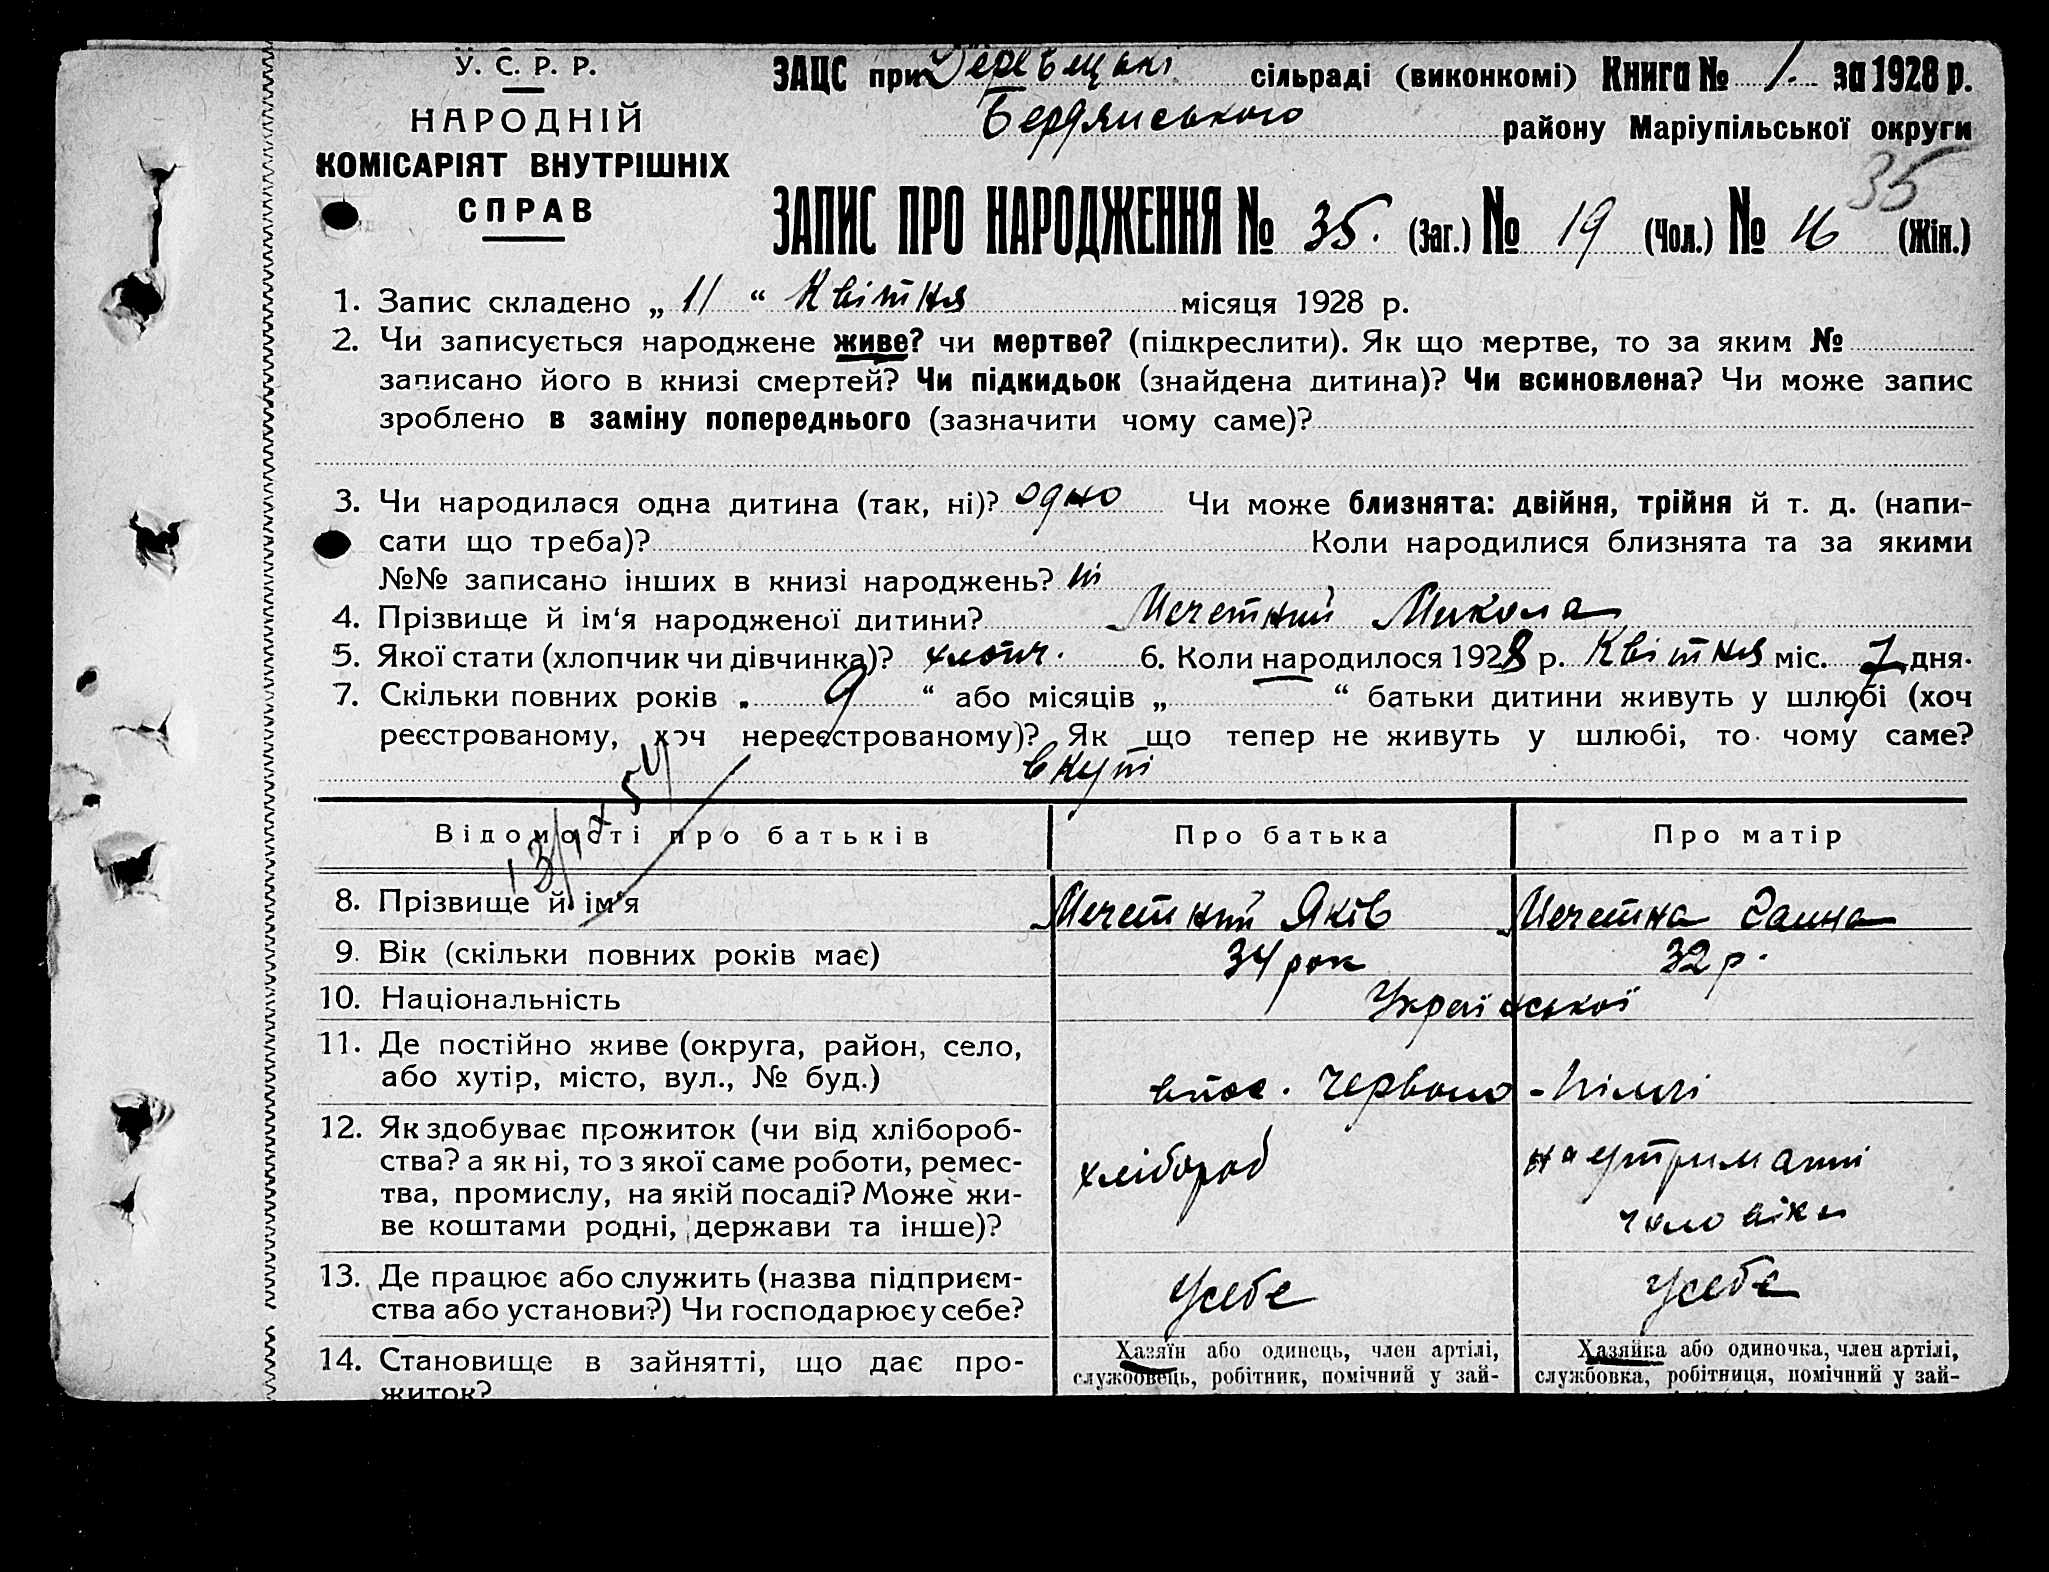 У. С. Р. Р.
НАРОДНІЙ
КОМІСАРІЯТ ВНУТРІШНІХ
СПРАВ
ЗАЦС при сільраді (виконкомі) Книга № 1. за 1928 р.
Бердянського району Маріупільської округи
35
ЗАПИС ПРО НАРОДЖЕННЯ № 35. (Заг.) № 19 (Чол.) № 16 (Жін.)
1. Запис складено „ 11 “ Квітня місяця 1928 р.
2. Чи записується народжене живе? чи мертве? (підкреслити). Як що мертве, то за яким №
записано його в книзі смертей? Чи підкидьок (знайдена дитина)? Чи всиновлена? Чи може запис
зроблено в заміну попереднього (зазначити чому саме)?
3. Чи народилася одна дитина (так, ні)? одно Чи може близнята: двійня, трійня й т. д. (напи-
сати що треба)? Коли народилися близнята та за якими
№№ записано інших в книзі народжень? ні
4. Прізвище й ім‘я народженої дитини? Мечетний Микола
5. Якої стати (хлопчик чи дівчинка)? хлопч. 6. Коли народилося 1928 р. Квітня міс. 7 дня.
7. Скільки повних років „ 9 “ або місяців „ “ батьки дитини живуть у шлюбі (хоч
реєстрованому, хоч нереєстрованому)? Як що тепер не живуть у шлюбі, то чому саме?
вкупі
Відомості про батьків Про батька Про матір
8. Прізвище й ім‘я Мечетний Яків Мечетна Ганна
9. Вік (скільки повних років має) 34 рок 32 р.
10. Національність Української
11. Де постійно живе (округа, район, село,
або хутір, місто, вул., № буд.) Червоно-
12. Як здобуває прожиток (чи від хлібороб-
ства? а як ні, то з якої саме роботи, ремес-
тва, промислу, на якій посаді? Може жи-
ве коштами родні, держави та інше)?
хлібороб
на утриманні
чоловіка
13. Де працює або служить (назва підприєм-
ства або установи?) Чи господарює у себе?
У себе У себе
14. Становище в зайнятті, що дає про-
житок?
Хазяїн або одинець, член артілі,
службовець, робітник, помічний у зай-
Хазяйка або одиночка, член артілі,
службовка, робітниця, помічний у зай-